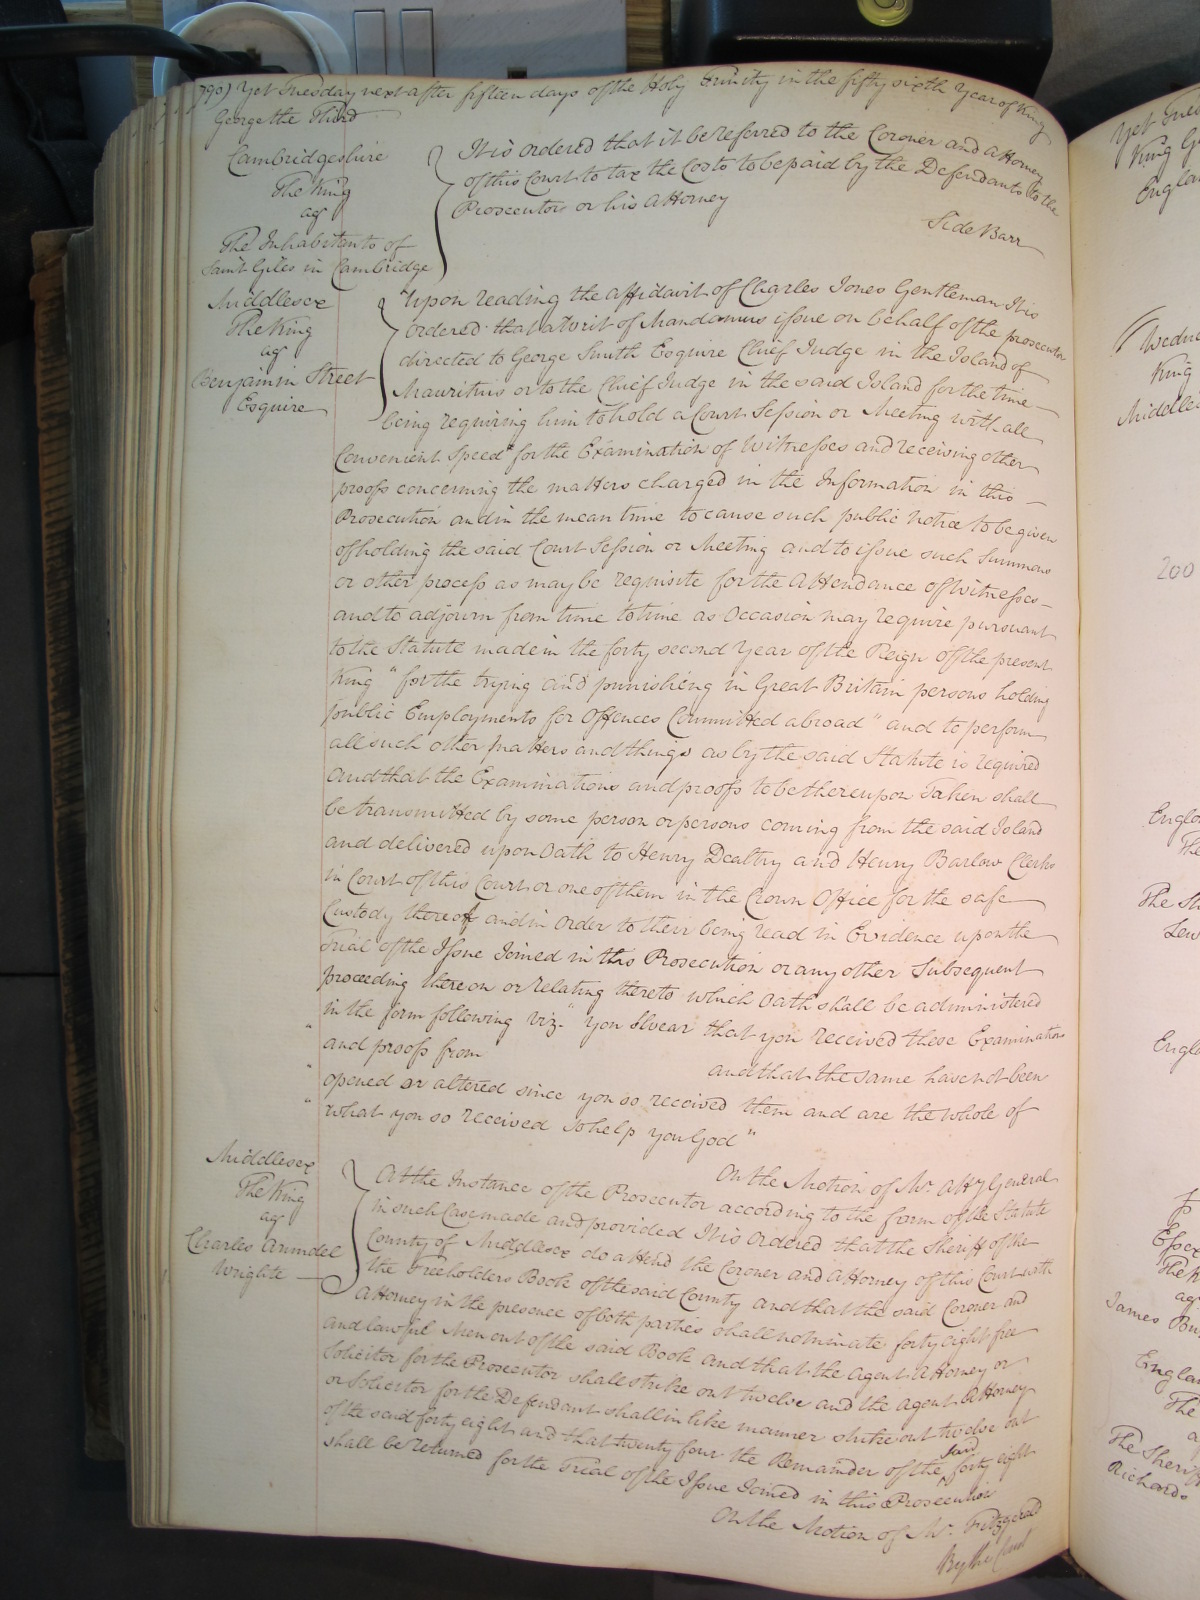 790) Yet Tuesday next after fifteen days of the Holy Trinity in the fifty sixth Year of King
George the Third
Cambridgeshire
The King
agt
The Inhabitants of
Saint Giles in Cambridge
It is ordered that it be referred to the Coroner and Attorney
of this Court to tax the Costs to be paid by the Defendants to the
Prosecutors or his Attorney
Side Barr
Middlesex
The King
agt
Benjamin Street
Esquire
Upon reading the affidavit of Charles Jones Gentleman It is
ordered that a Writ of Mandamus issue on behalf of the prosecutor
directed to George Smith Esquire Chief Judge in the Island of
Mauritius or to the Chief Judge in the said Island for the time
being requiring him to hold a Court Session or Meeting with all
Convenient Speed for the Examination of Witnesses and receiving other
proofs concerning the matters charged in the Information in this
Prosecution and in the mean time to cause such public Notice to be given
of holding the said Court Session or Meeting and to issue such Summons
or other process as may be requisite for the Attendance of Witnesses
and to adjourn from time to time as Occasion may require pursuant
to the Statute made in the forty second Year of the Reign of the present
King "for the trying and punishing in Great Britain persons holding
public Employments for Offences Committed abroad" and to perform
all such other matters and things as by the said Statute is required
And that the Examinations and proofs to be thereupon Taken shall
be transmitted by some person or persons coming from the said Island
and delivered upon Oath to Henry Dealtry and Henry Barlow Clerks
in Court of this Court or one of them in the Crown Office for the safe
Custody thereof and in Order to their being read in Evidence upon the
Trial of the Issue Joined in this Prosecution or any other Subsequent
proceeding thereon or relating thereto which Oath shall be administered
in the form following viz. "You Swear that you received these Examinations
" and proofs from and that the same have not been
" opened or altered since you so received them and are the whole of
" what you so received So help you God"
On the Motion of Mr. Atty General
Middlesex
The King
agt
Charles Arundel
Wrighte
At the Instance of the Prosecutor according to the form of the Statute
in such Case made and provided It is Ordered that the Sheriff of the
County of Middlesex do attend the Coroner and Attorney of this Court with
the Freeholders Book of the said County and that the said Coroner and
Attorney in the presence of both parties shall nominate forty eight free
and lawful Men out of the said Book and that the Agent Attorney or
Solicitor for the Prosecutor shall strike out twelve and the Agent Attorney
or Solicitor for the Defendant shall in like manner strike out twelve out
of the said forty eight and that twenty four the Remainder of the said forty eight
shall be returned for the Trial of the Issue Joined in this Prosecution
On the Motion of Mr. Fitzgerald
By the Court
Yet Tues
King G
Englan
Wedne
King
Middles
200
Engla
The
The
Engla
Essex
The K
agt
James
Englan
The
The Sheri
Richards